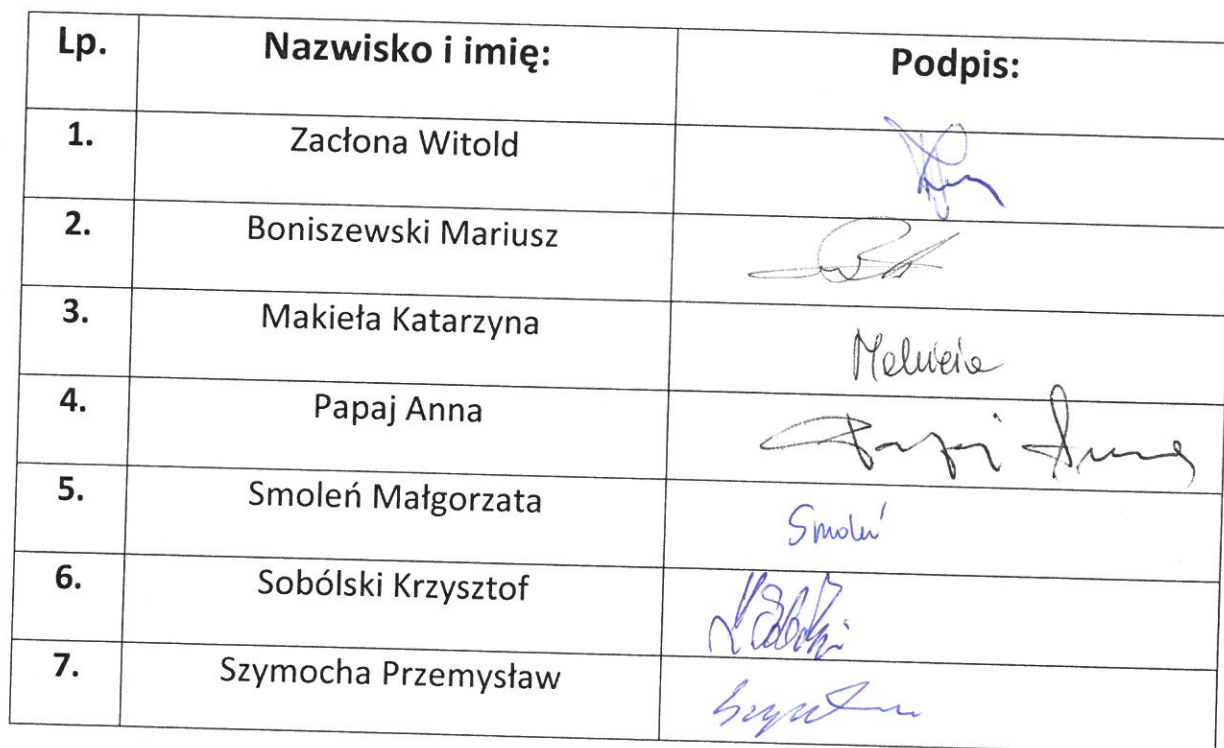 Lp. Nazwisko i imię: Podpis:
1. Zacłona Witold
2. Boniszewski Mariusz
3. Makieła Katarzyna
4. Papaj Anna Papaj Anna
5. Smoleń Małgorzata Smoleń
6. Sobólski Krzysztof
7. Szymocha Przemysław